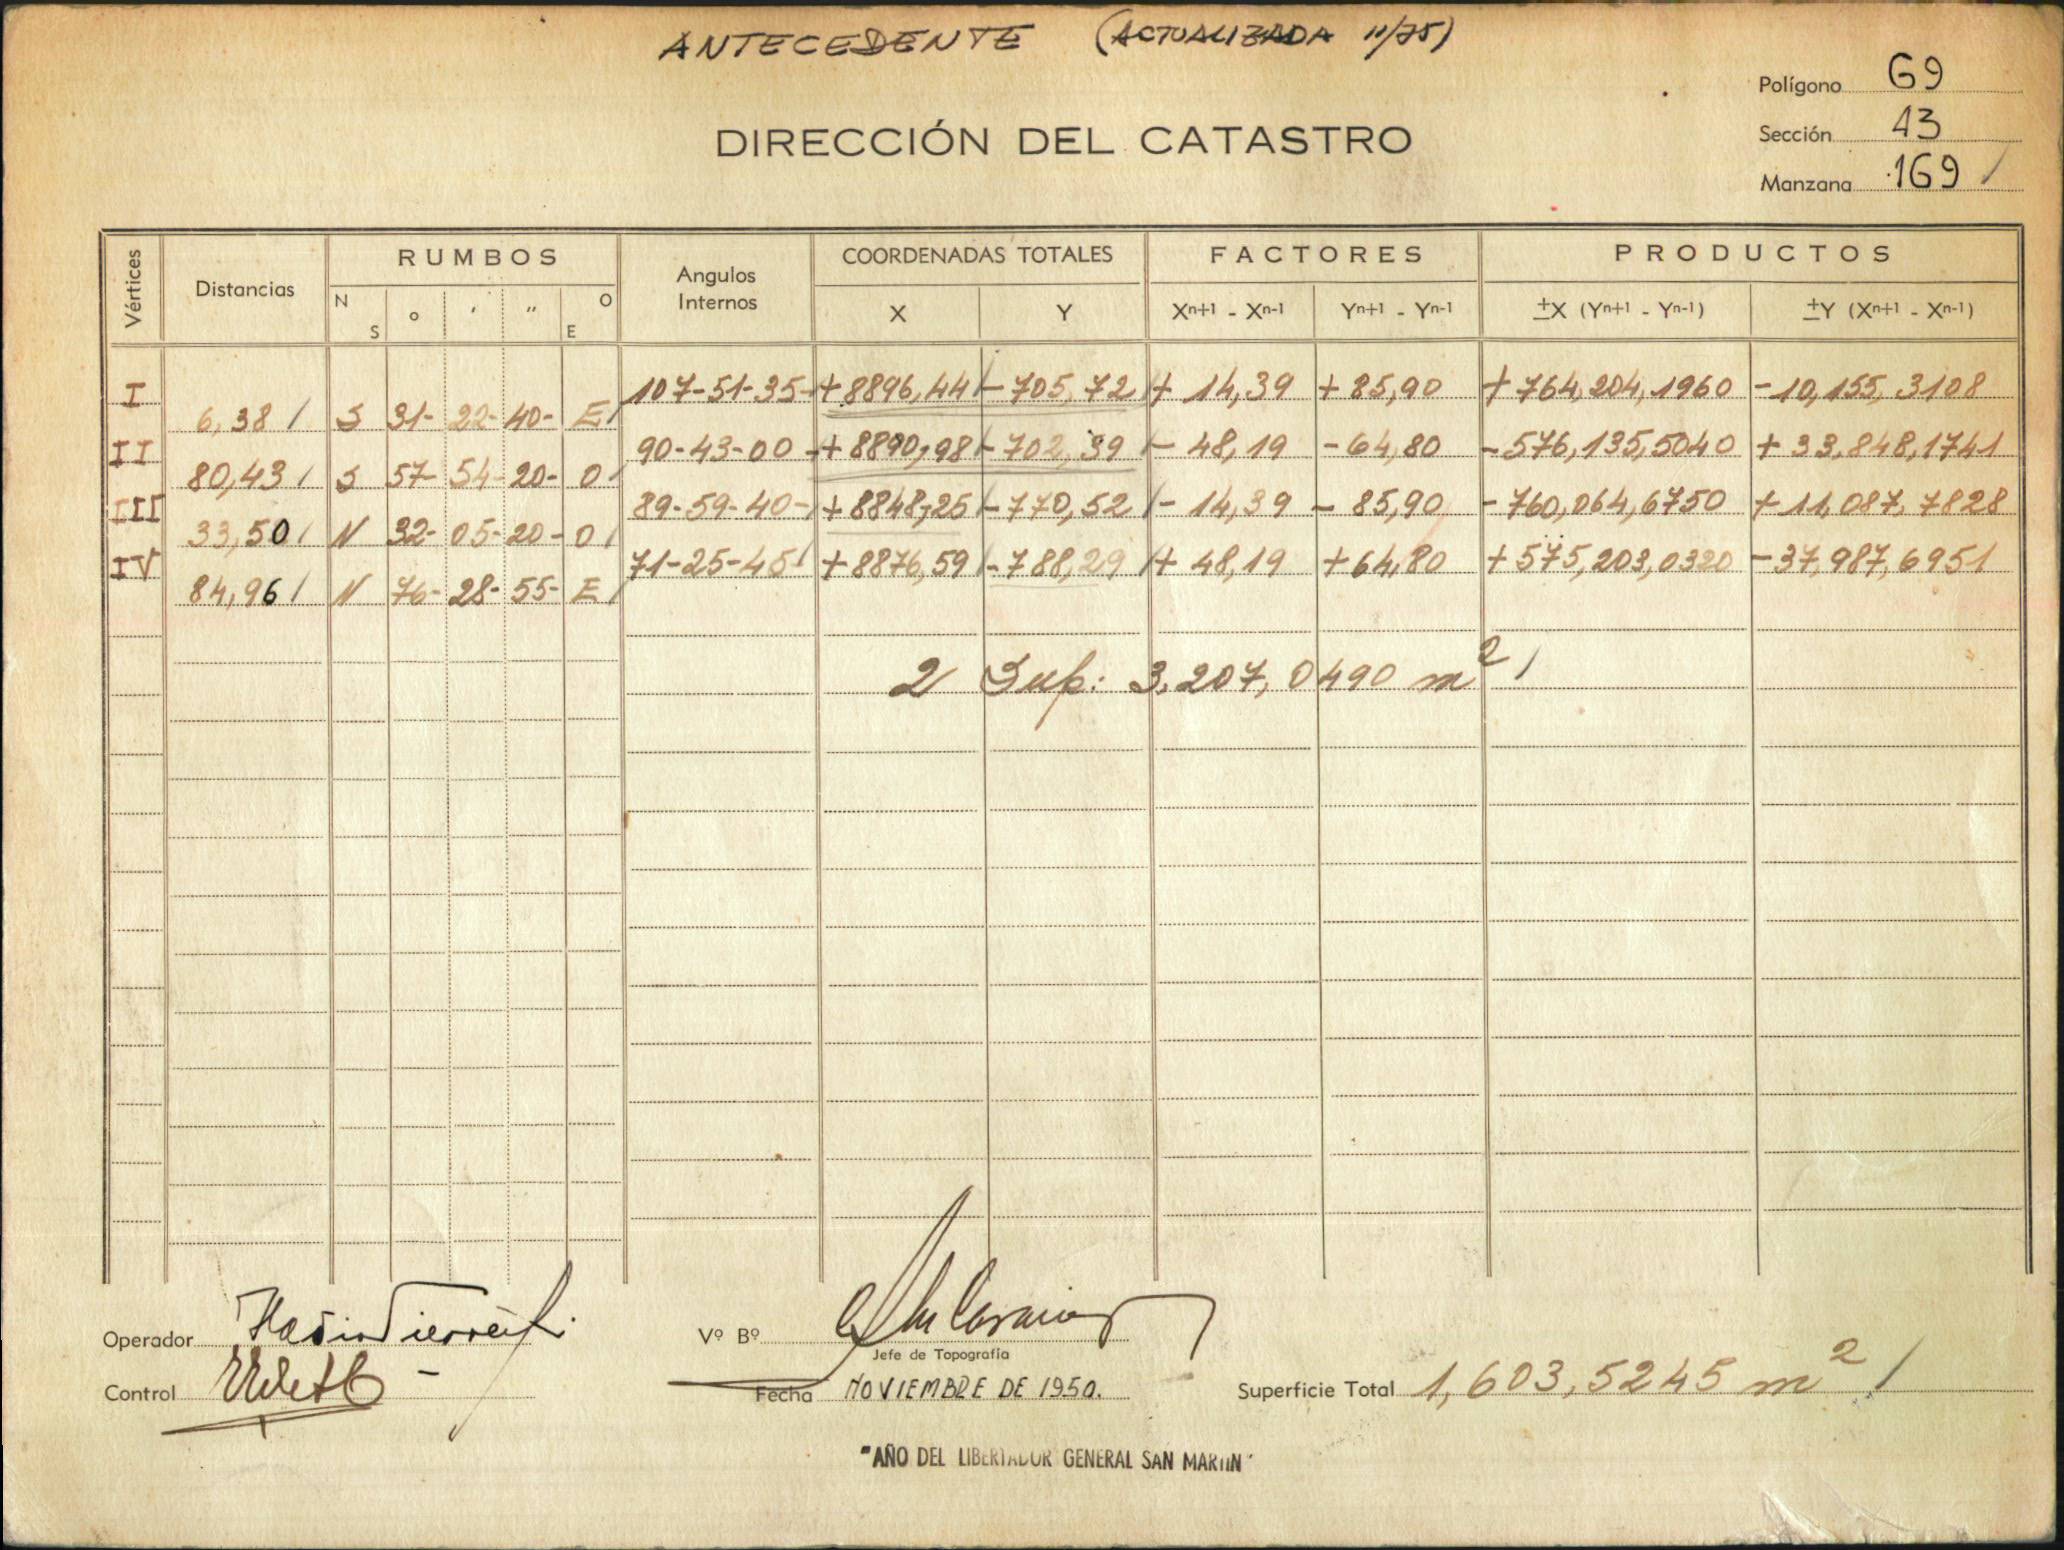 ANTECEDENTE (ACTUALIZADA 11/75)
Polígono 69
DIRECCIÓN DEL CATASTRO
Sección 13
Manzana 169 /
Vértices Distancias RUMBOS Angulos Internos COORDENADAS TOTALES FACTORES PRODUCTOS
N S o ' " O E X Y Xn+1 - Xn-1 Yn+1 - Yn-1 ±X (Yn+1 - Yn-1) ±Y (Xn+1 - Xn-1)
I 107-51-35- +8896,44 / - 705,72 / + 14,39 + 85,90 + 764,204,1960 - 10,155,3108
6,38 / S 31- 22- 40- E /
II 90-43-00 - +8890,98 / - 702,39 / - 48,19 - 64,80 - 576,135,5040 + 33,848,1741
80,43 / S 57- 54- 20- O /
III 89-59-40- / +8848,25 / - 770,52 / - 14,39 - 85,90 - 760,064,6750 + 11,087,7828
33,50 / N 32- 05- 20- O /
IV 71-25-45 / +8876,59 / - 788,29 / + 48,19 + 64,80 + 575,203,0320 - 37,987,6951
84,96 / N 76- 28- 55- E /
2 Sup: 3,207,0490 m² /
Operador
Vº Bº
Jefe de Topografía
Control
Fecha NOVIEMBRE DE 1950.
Superficie Total 1,603,5245 m² /
"AÑO DEL LIBERTADOR GENERAL SAN MARTIN"